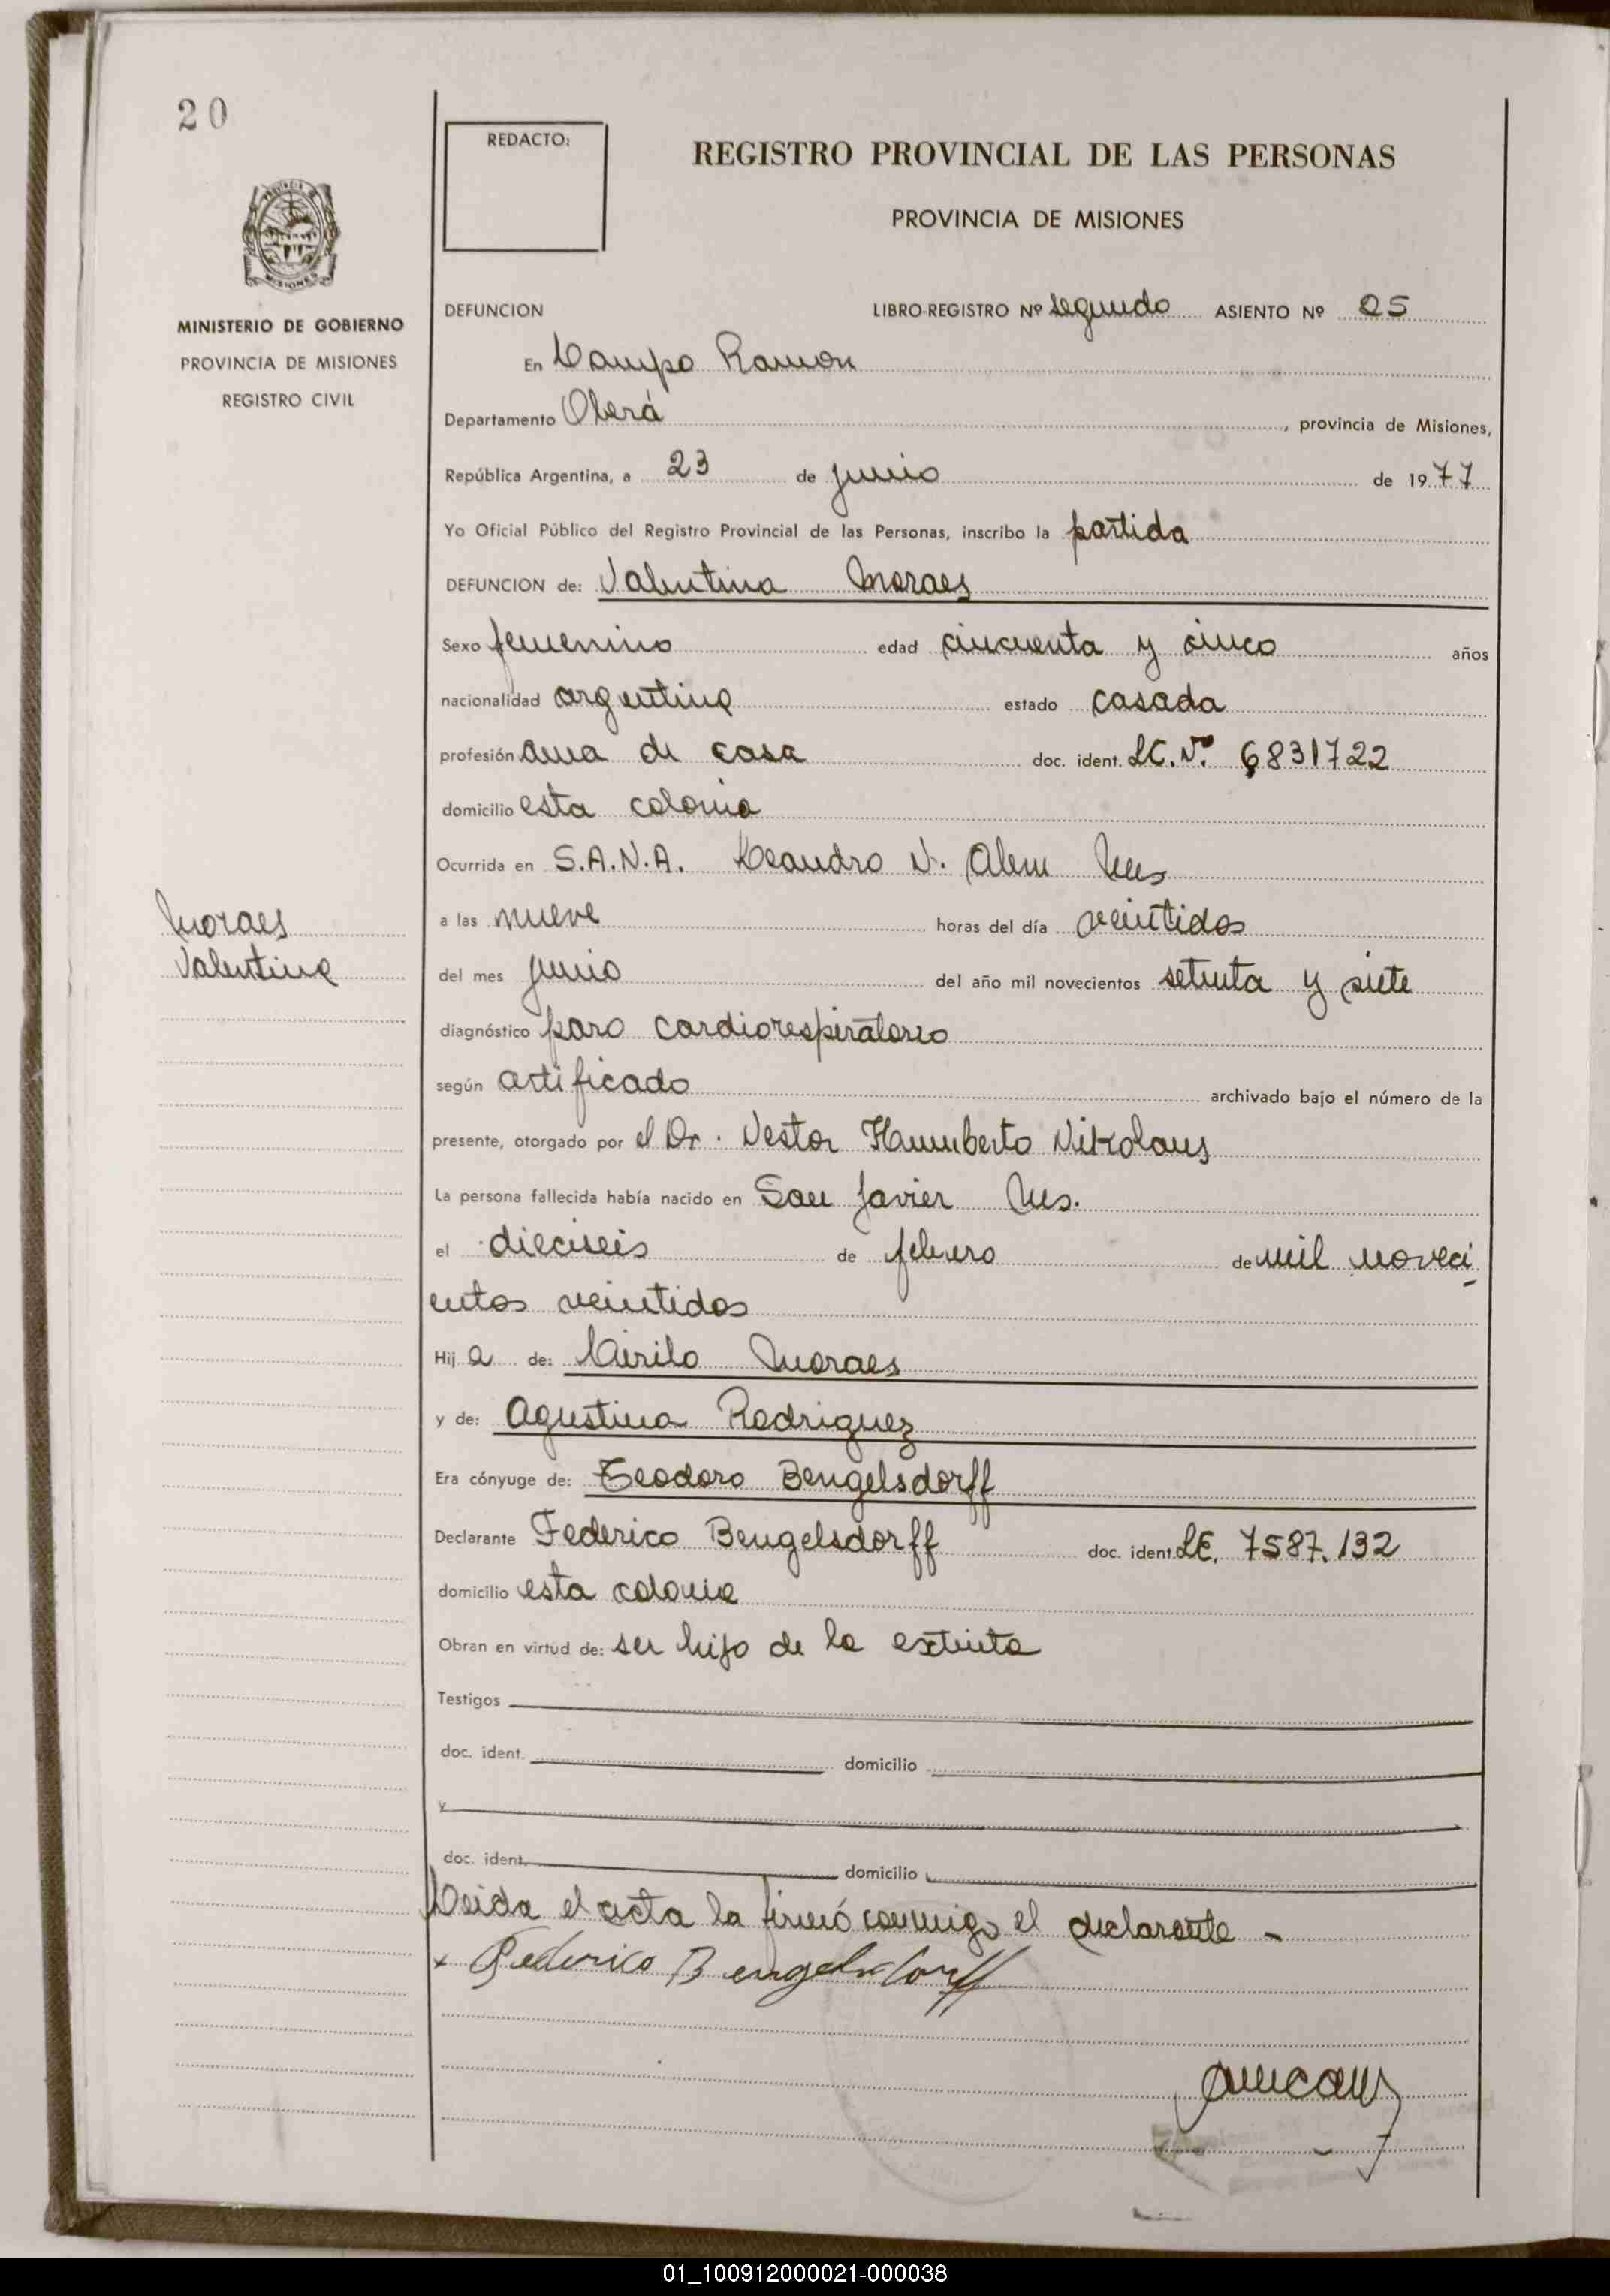 20
REDACTO:
REGISTRO PROVINCIAL DE LAS PERSONAS
PROVINCIA DE MISIONES
MISIONES
MINISTERIO DE GOBIERNO
PROVINCIA DE MISIONES
REGISTRO CIVIL
DEFUNCION LIBRO-REGISTRO Nº segundo ASIENTO Nº 25
En Campo Ramon
Departamento Oberá, provincia de Misiones,
República Argentina, a 23 de junio de 1977
Yo Oficial Público del Registro Provincial de las Personas, inscribo la partida
DEFUNCION de: Valentina Moraes
Sexo femenino edad cincuenta y cinco años
nacionalidad argentina estado casada
profesión ama de casa doc. ident. LC. Nº 6831722
domicilio esta colonia
Ocurrida en S.A.N.A. Leandro N. Alem Mnes
Moraes
Valentina
a las nueve horas del día veintidos
del mes junio del año mil novecientos setenta y siete
diagnóstico paro cardiorespiratorio
según certificado archivado bajo el número de la
presente, otorgado por el Dr. Nestor Humberto Nikolaus
La persona fallecida había nacido en San Javier Mns.
el dieciseis de febrero de mil noveci
entos veintidos
Hija de: Cirilo Moraes
y de: Agustina Rodriguez
Era cónyuge de: Teodoro Bengelsdorff
Declarante Federico Bengelsdorff doc. ident. LE. 7587.132
domicilio esta colonia
Obran en virtud de: ser hijo de la extinta
Testigos
doc. ident. domicilio
y
doc. ident. domicilio
Leida el acta la firmó conmigo el declarante -
x Federico Bengelsdorff
01_100912000021-000038